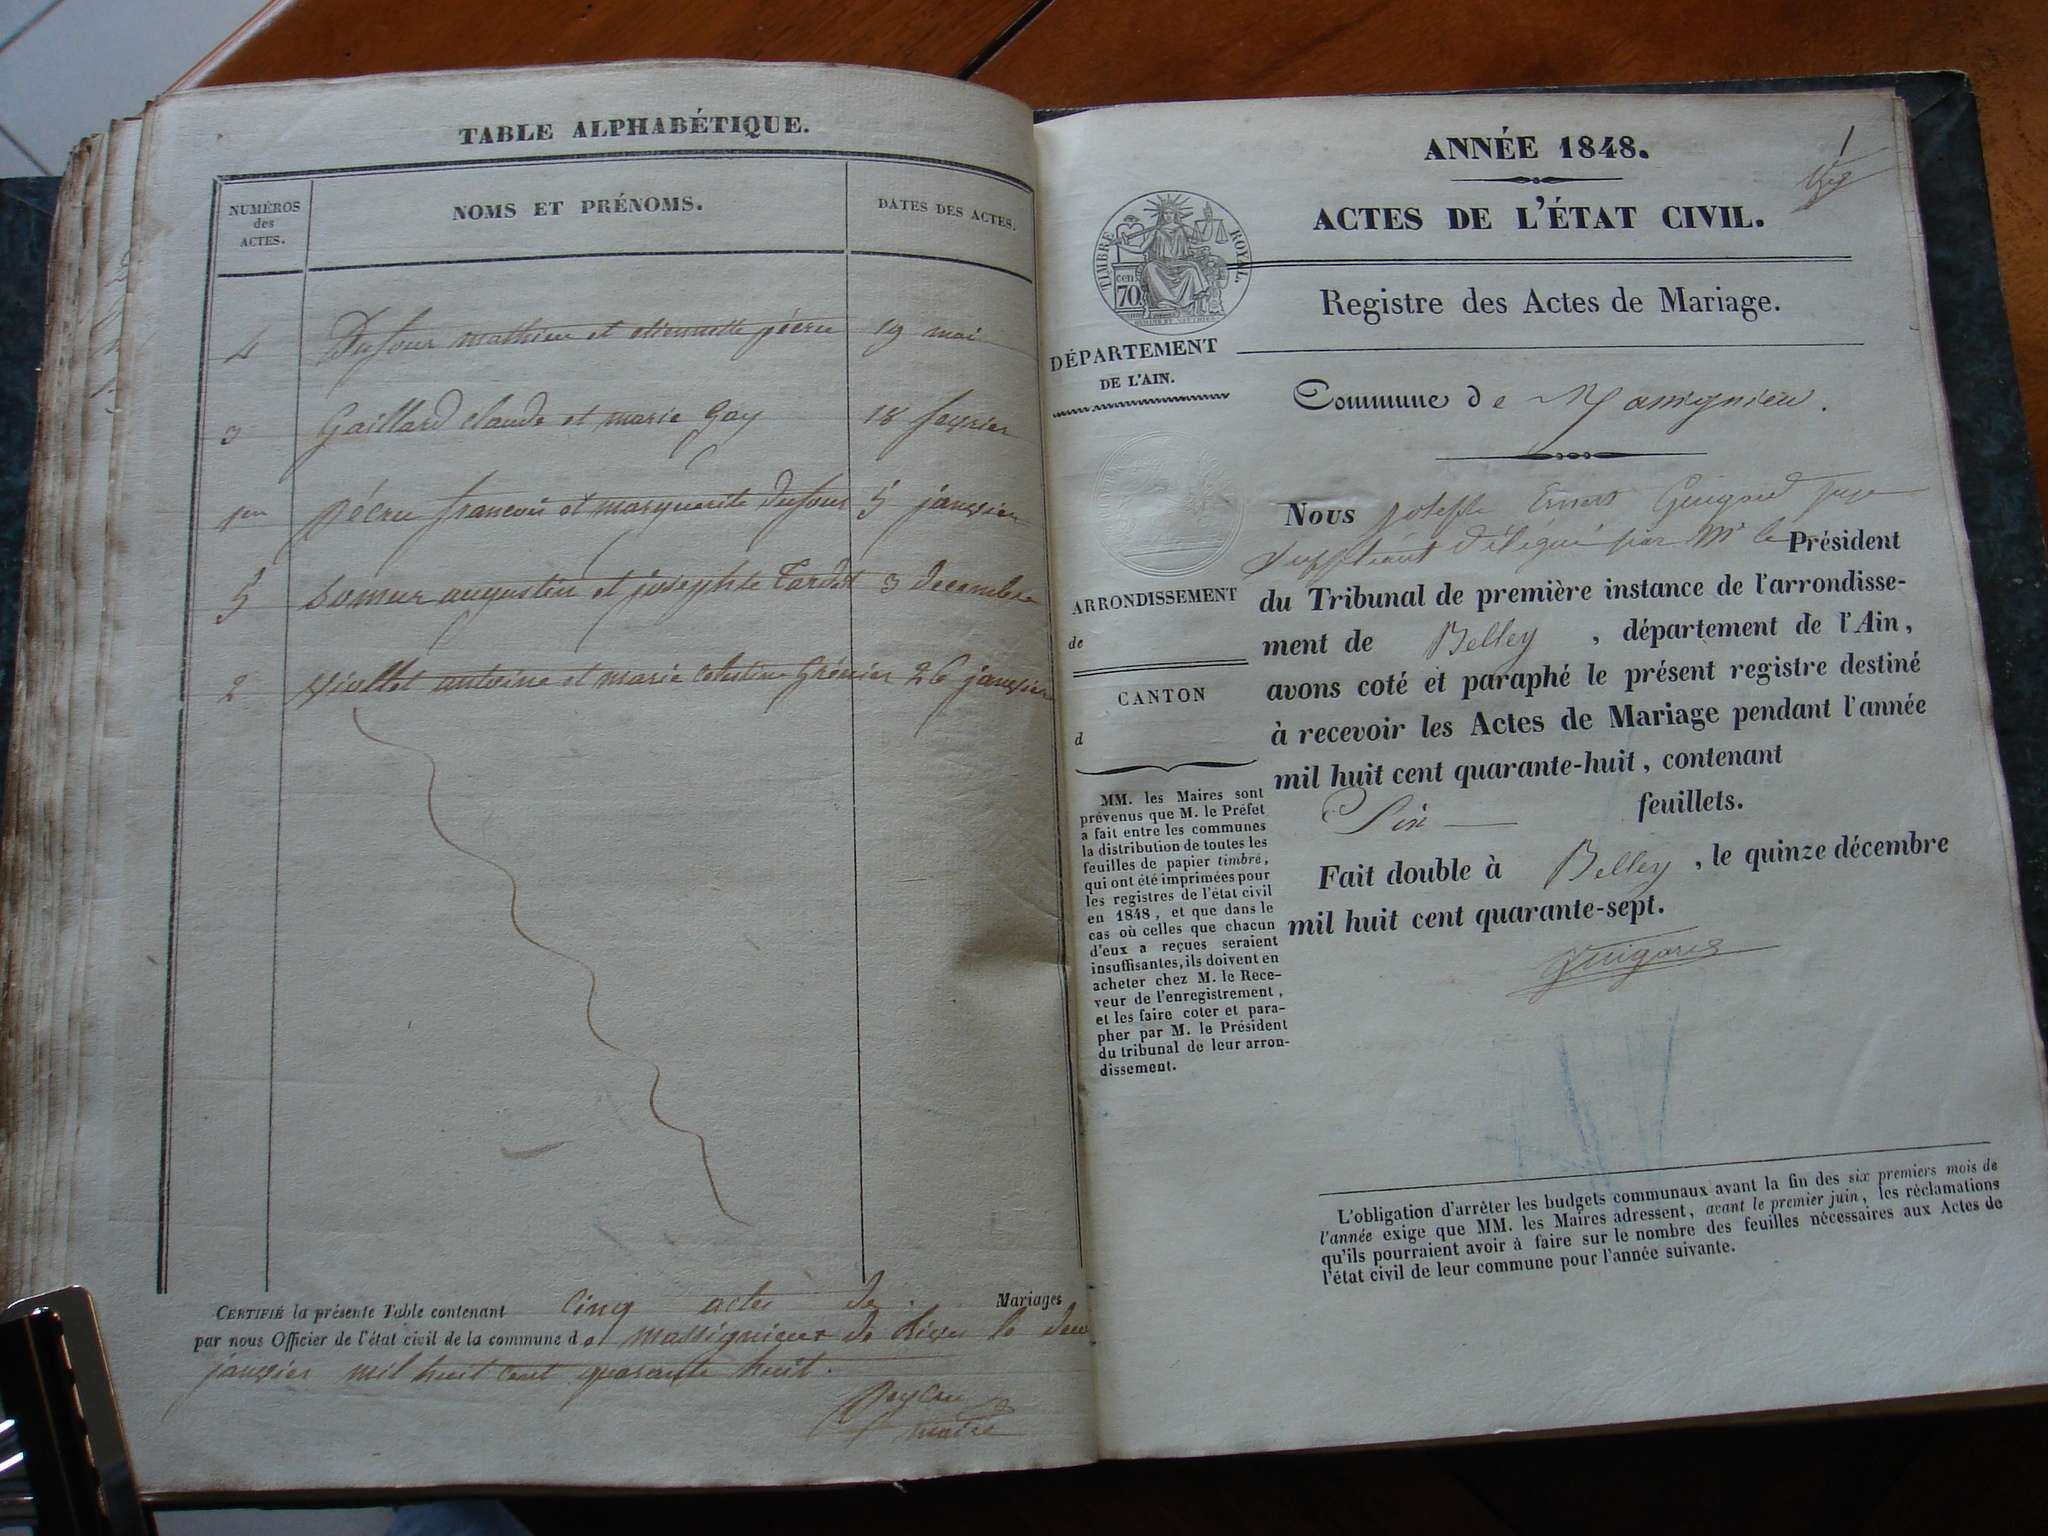 TABLE ALPHABÉTIQUE.
NUMÉROS des ACTES.
NOMS ET PRÉNOMS.
DATES DES ACTES.
4 Dufour mathieu et etiennette pécru 19 mai
3 Gaillard claude et marie Gay 18 fevrier
1er Pécru francois et marguerite Dufour 5 janvier
5 augustin et josephte 3 decembre
2 Viollet antoine et marie celestine Grénier 26 janvier
CERTIFIÉ la présente Table contenant cinq actes de Mariages
par nous Officier de l'état civil de la commune de massignieux de Rives le deux
janvier mil huit cent quarante huit.
maire
ANNÉE 1848.
1
ACTES DE L'ÉTAT CIVIL.
TIMBRE ROYAL
cen 70
Registre des Actes de Mariage.
DÉPARTEMENT
DE L'AIN.
Commune de Massignieu.
Nous Joseph Ernest juge
suppléant délégué par Mr le Président
du Tribunal de première instance de l'arrondisse-
ment de Belley, département de l'Ain,
avons coté et paraphé le présent registre destiné
à recevoir les Actes de Mariage pendant l'année
mil huit cent quarante-huit, contenant
Six feuillets.
Fait double à Belley, le quinze décembre
mil huit cent quarante-sept.
ARRONDISSEMENT
de
CANTON
d
MM. les Maires sont
prévenus que M. le Préfet
a fait entre les communes
la distribution de toutes les
feuilles de papier timbré,
qui ont été imprimées pour
les registres de l'état civil
en 1848, et que dans le
cas où celles que chacun
d'eux a reçues seraient
insuffisantes, ils doivent en
acheter chez M. le Rece-
veur de l'enregistrement,
et les faire coter et para-
pher par M. le Président
du tribunal de leur arron-
dissement.
L'obligation d'arrêter les budgets communaux avant la fin des six premiers mois de
l'année exige que MM. les Maires adressent, avant le premier juin, les réclamations
qu'ils pourraient avoir à faire sur le nombre des feuilles nécessaires aux Actes de
l'état civil de leur commune pour l'année suivante.